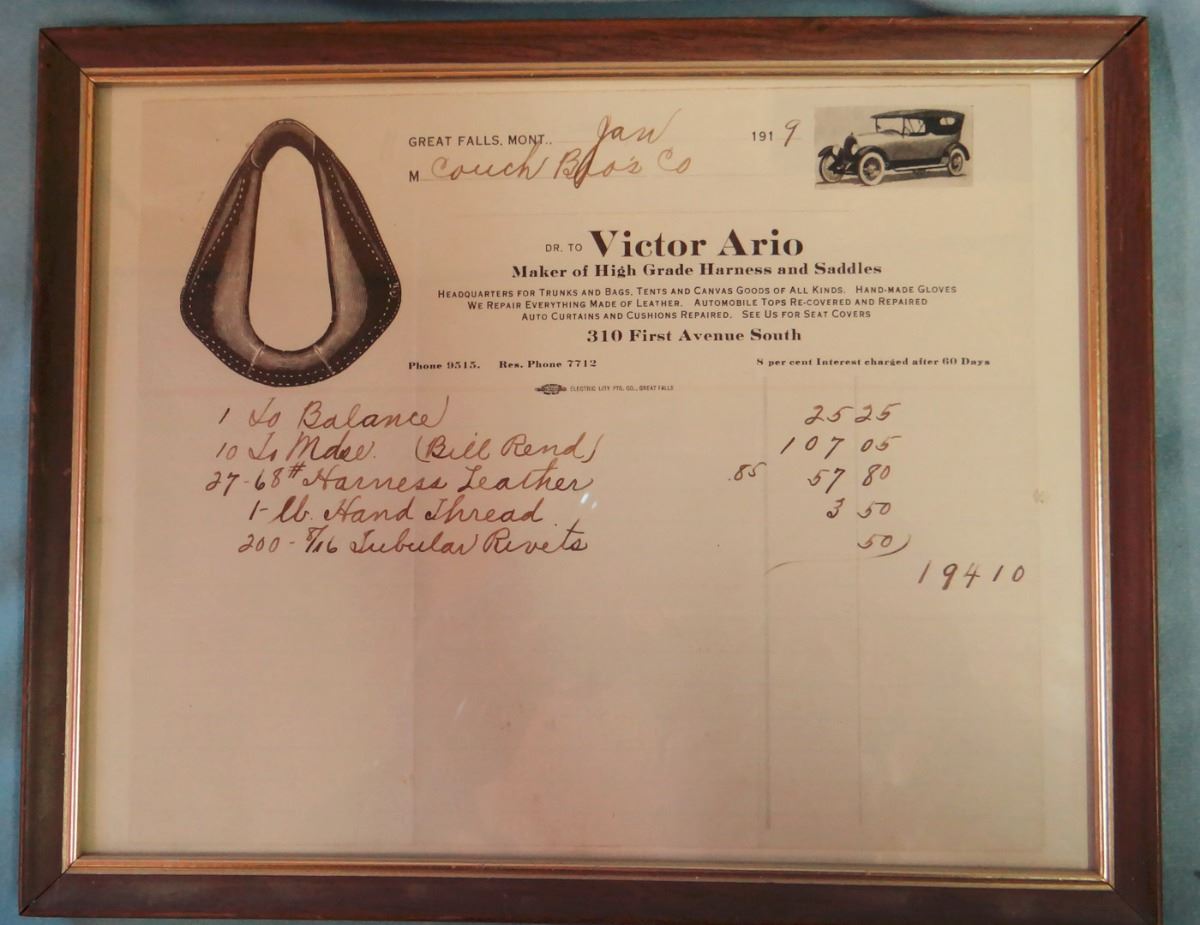 GREAT FALLS, MONT., Jan 1919
M Couch Bro's Co
DR. TO Victor Ario
Maker of High Grade Harness and Saddles
HEADQUARTERS FOR TRUNKS AND BAGS, TENTS AND CANVAS GOODS OF ALL KINDS. HAND-MADE GLOVES
WE REPAIR EVERYTHING MADE OF LEATHER. AUTOMOBILE TOPS RE-COVERED AND REPAIRED
AUTO CURTAINS AND CUSHIONS REPAIRED. SEE US FOR SEAT COVERS
310 First Avenue South
Phone 9515. Res. Phone 7712 8 per cent Interest charged after 60 Days
ELECTRIC CITY PTG. CO., GREAT FALLS
1 To Balance 25 25
10 To Mdse. (Bill Rend) 107 05
27-68# Harness Leather .85 57 80
1-lb. Hand Thread 3 50
200-5/16 Tubular Rivets 50
194 10